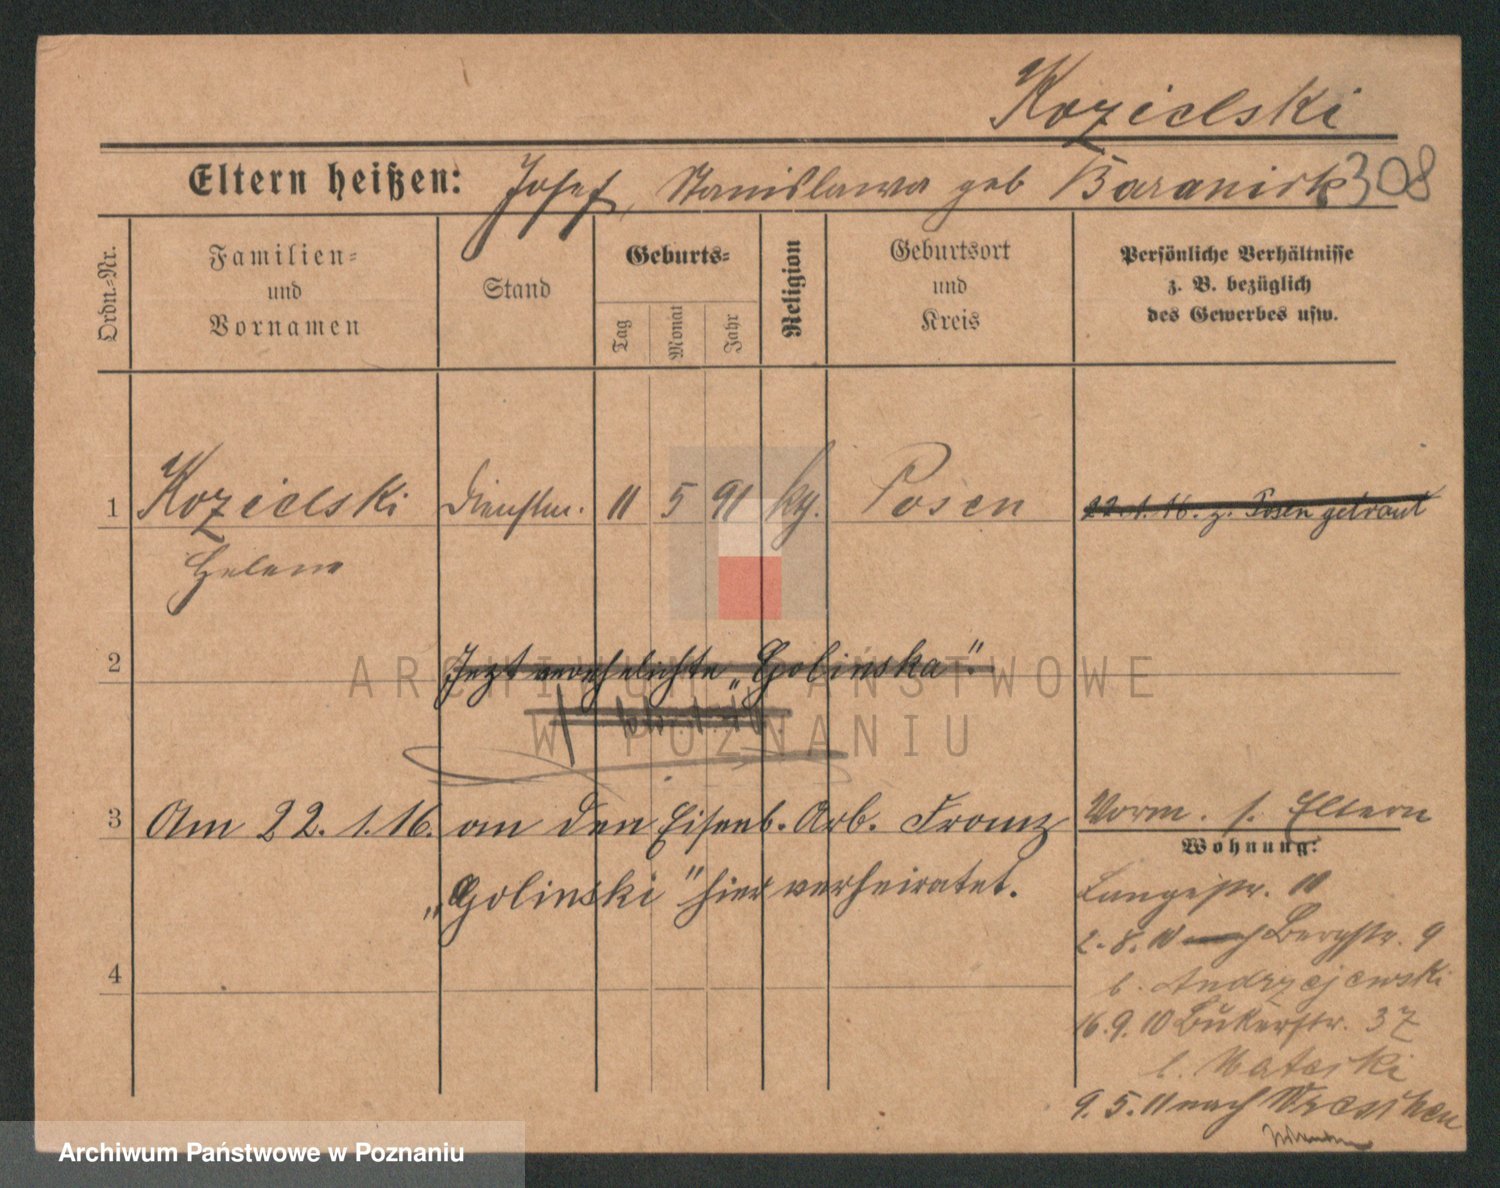 Kozielski
Eltern heißen: Josef, Stanislawa geb Baraniok 308
Ordn.-Nr.
Familien- und Vornamen
Stand
Geburts-
Tag
Monat
Jahr
Religion
Geburtsort und Kreis
Persönliche Verhältnisse
z. B. bezüglich
des Gewerbes usw.
1 Kozielski Dienstm. 11 5 91 kg. Posen 22. 1. 16. z. Posen getraut
Helene
2 Jetzt verehelichte „Golinska".
ARCHIWUM PAŃSTWOWE
W POZNANIU
3 Am 22. 1. 16. an den Eisenb. Arb. Franz
„Golinski" hier verheiratet.
4
Vorm. s. Eltern
Wohnung:
Langestr. 11
2. 8. 10 nach Bergstr. 9
b. Andrzejewski
16. 9. 10 Bukerstr. 37
b. Mataski
9. 5. 11 nach Wreschen
Archiwum Państwowe w Poznaniu